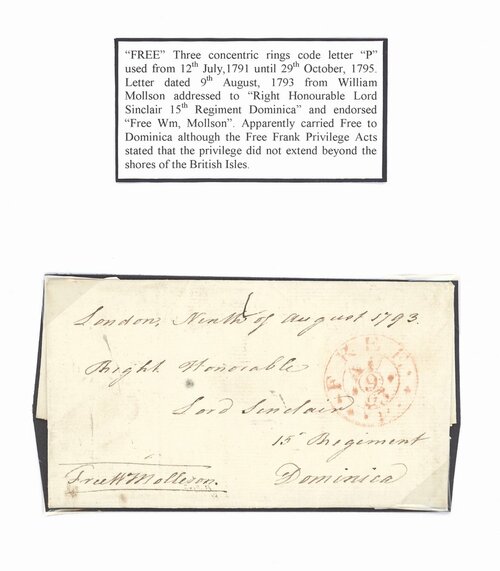 “FREE” Three concentric rings code letter “P”
used from 12th July,1791 until 29th October, 1795.
Letter dated 9th August, 1793 from William
Mollson addressed to “Right Honourable Lord
Sinclair 15th Regiment Dominica” and endorsed
“Free Wm, Mollson”. Apparently carried Free to
Dominica although the Free Frank Privilege Acts
stated that the privilege did not extend beyond the
shores of the British Isles.
London, Ninth of August 1793.
Right Honorable
FREE
Lord Sinclair
15th Regiment
Free Wm Molleson.
Dominica